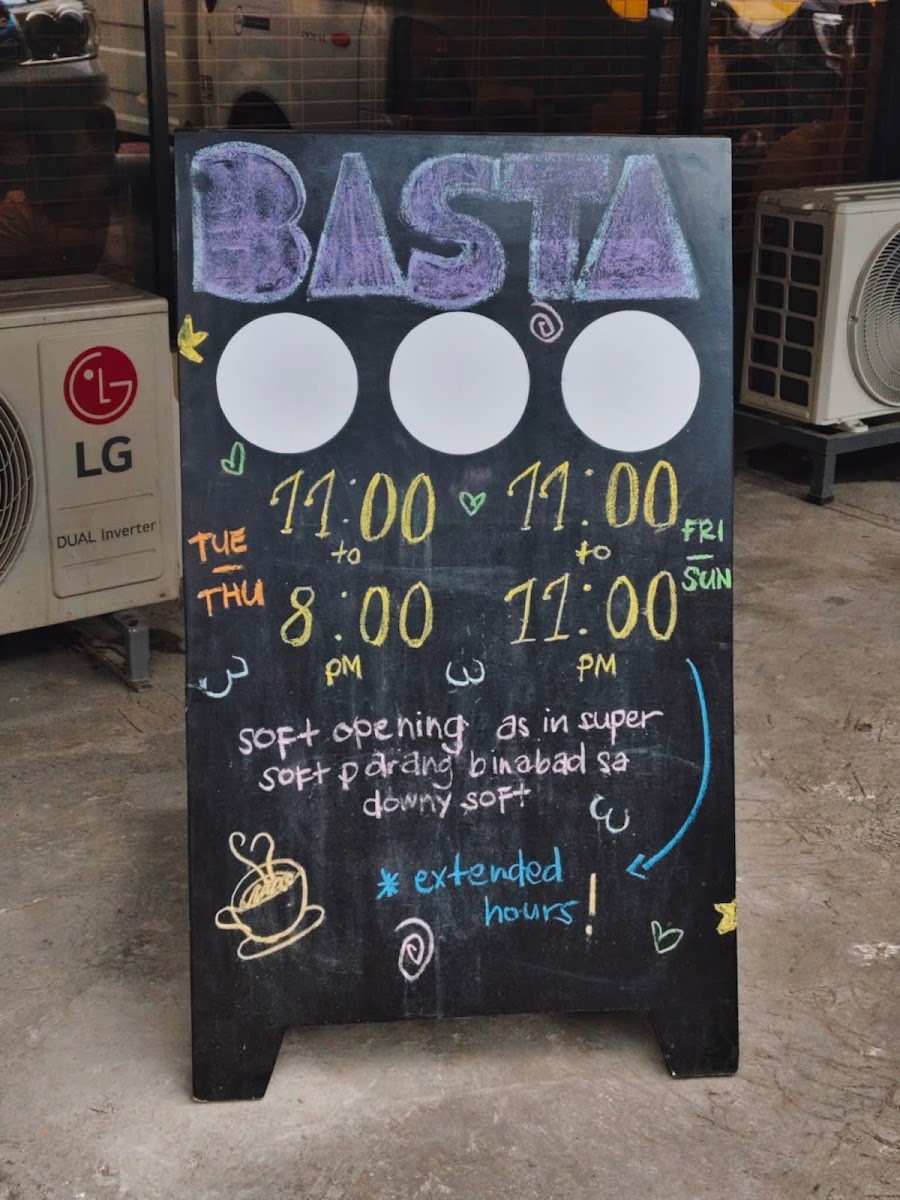 BASTA
11:00 11:00
TUE
—
THU
to to
FRI
—
SUN
8:00 11:00
PM PM
soft opening as in super
soft parang binabad sa
downy soft
* extended
hours!
LG
LG
DUAL Inverter